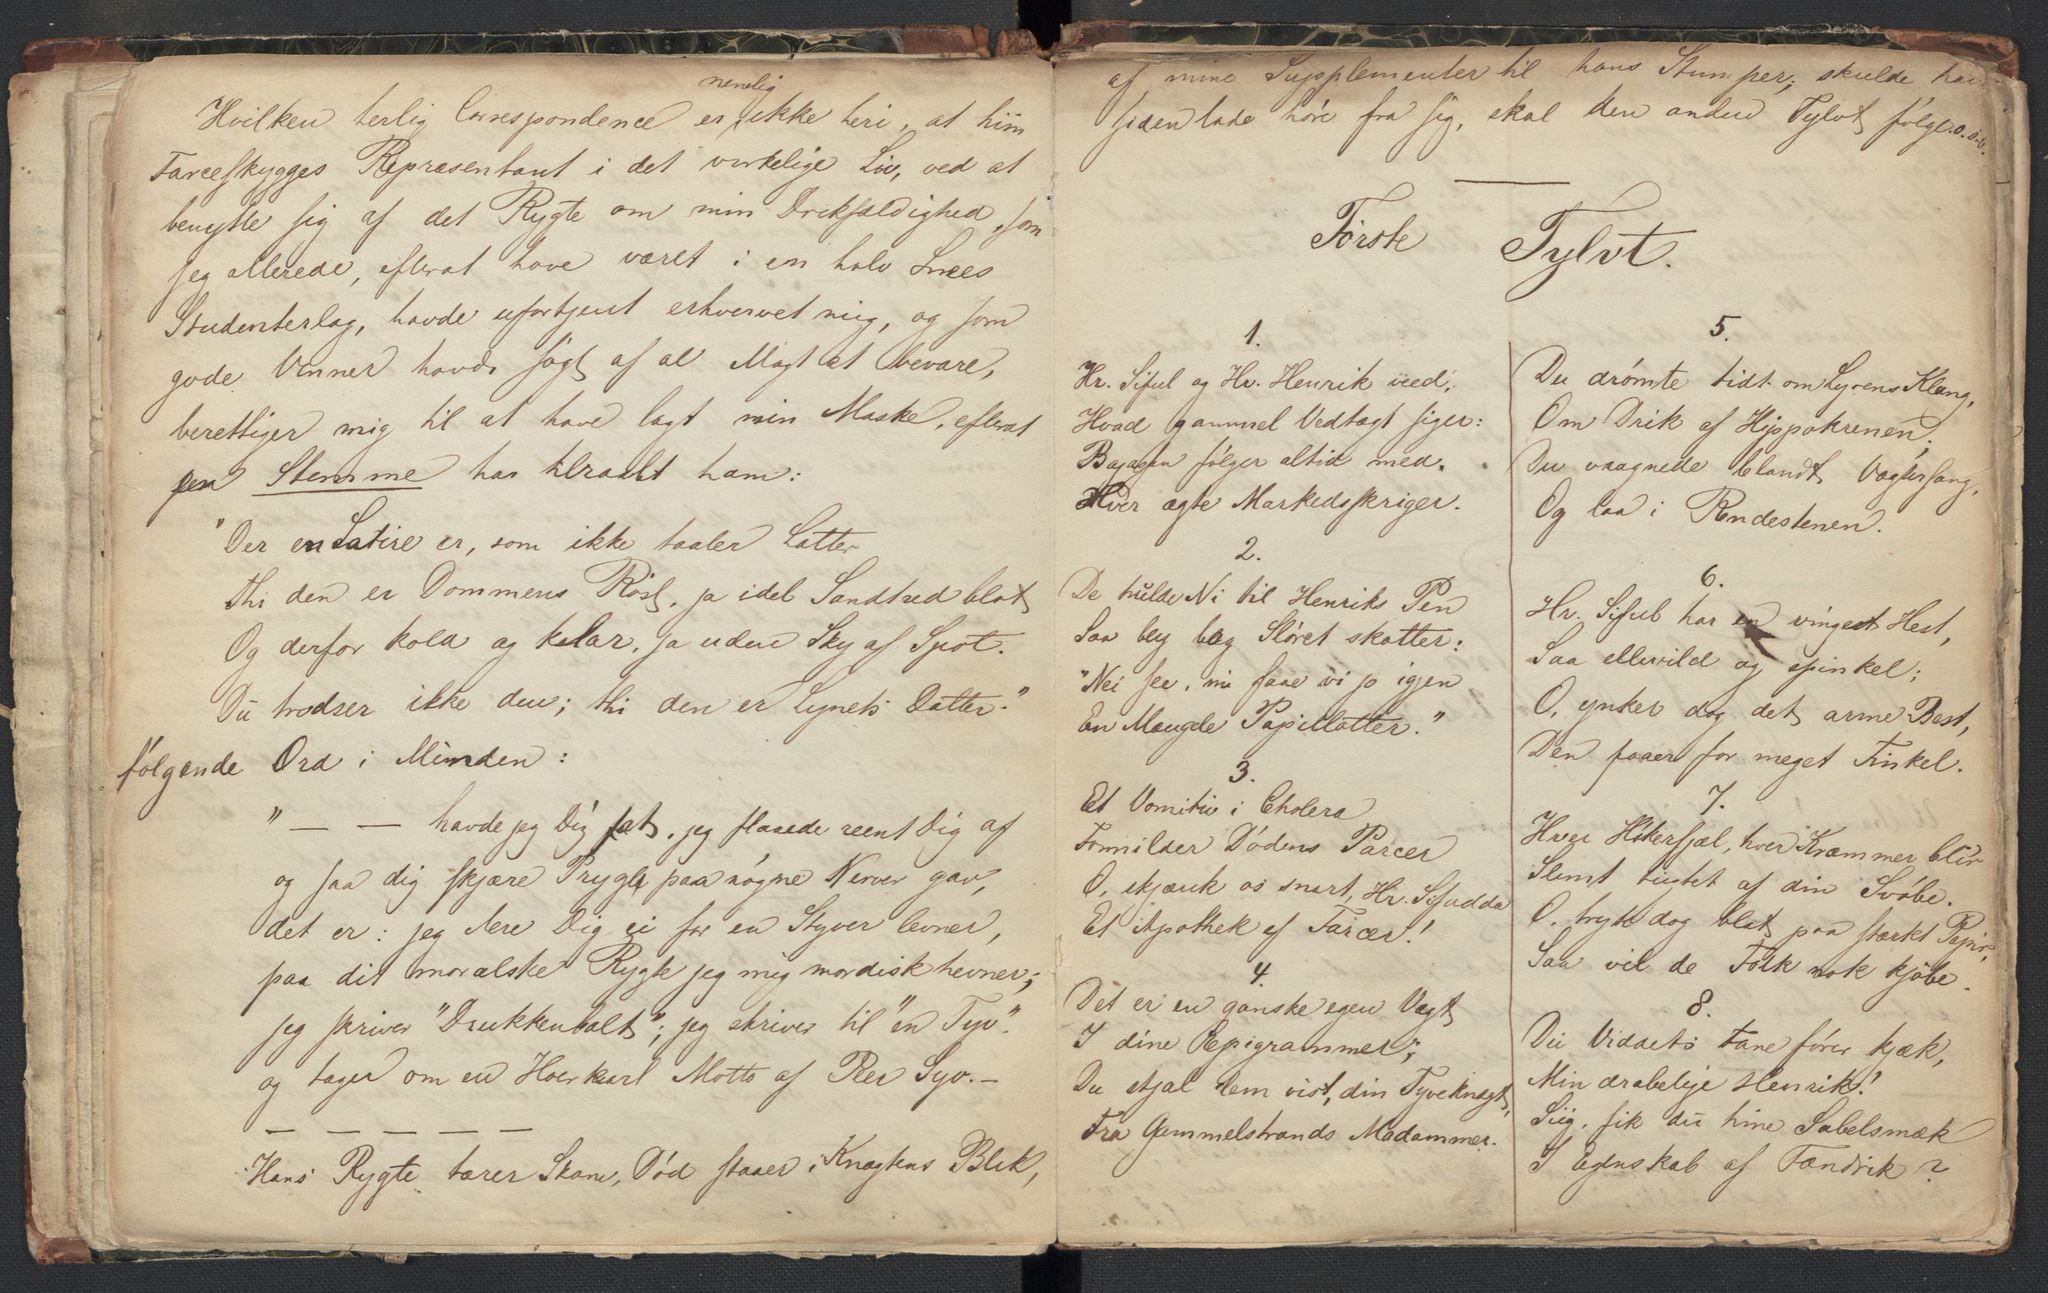 nemlig
Hvilken herlig Correspondence er ikke heri, at hiin
Farceskygges Repræsentant i det virkelige Liv, ved at
benytte sig af det Rygte om min Drikfældighed, som
jeg allerede, efterat have været i en halv Snees
Studenterlag, havde ufortjent erhvervet mig, og som
gode Venner havde søgt af al Magt at bevare,
berettiger mig til at have lagt min Maske, efterat
Stemme har tilraabt ham:
"Der en Satire er, som ikke taaler Latter
thi den er Dommens Røst, ja idel Sandhed blot
Og derfor kold og klar, ja uden Sky af Spot.
Du trodser ikke den; thi den er Lynets Datter."
følgende Ord i Munden:
" — — havde jeg Dig fat, jeg flaaede reent Dig af
og saa dig skjære Prygl paa nøgne Nerver gav,
det er: jeg Ære Dig ei for en Styver levner,
paa dit moralske Rygte jeg mig mordisk hevner;
jeg skriver "Drukkenbolt"; jeg skriver til "en Tyv".
og tager om en Hoerkarl Motto af Peer Syv. —
— — — — —
Hans Rygte bærer Skam, Død staaer i Knægtens Blik,
af mine Supplementer til hans Stumper; skulde han
siden lade høre fra sig, skal den anden Tylvt følge o.s.v.
Første Tylvt.
1.
Hr. Siful og Hr. Henrik veed,
Hvad gammel Vedtægt siger:
Bagagen følger altid med
Hver ægte Markedskriger.
2.
De hulde Ni til Henriks Pen
Saa bly bag Sløret skotter:
"Nei see, nu faae vi jo igjen
En Mængde Papillotter."
3.
Et Vomitiv i Cholera
Formilder Dødens Parcer
O, skjænk os snart, Hr. Sifadda
Et Apothek af Farcer!
4.
Det er en ganske egen Vægt
I dine Epigrammer;
Du stjal dem vist, din Tyveknægt,
Fra Gammelstrands Madammer.
5.
Du drømte tidt om Lyrens Klang,
Om Drik af Hippokrenen;
Du vaagnede blandt Vægtersang,
Og laa i Rendestenen.
6.
Hr. Siful har en vinget Hest,
Saa ellevild og spinkel;
O, ynker dog det arme Best,
Den faaer for meget Finkel.
7.
Hver Høkersjæl, hver Kræmmer blir
Slemt tugtet af din Svøbe.
O, tryk dog blot paa stærkt Papir,
Saa vil de Folk nok kjøbe.
8.
Du Viddets Fane fører kjæk,
Min drabelige Henrik!
Siig, fik du hine Sabelsmæk
I Egenskab af Fændrik?